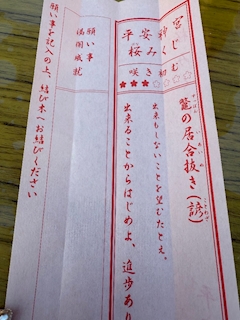 平安神宮
桜みくじ
咲き初む
鼈の居合抜き(諺)
出来もしないことを望むたとえ。
出来ることからはじめよ、進歩あり
願い事
満開成就
願い事を記入の上、結び木へお結びください